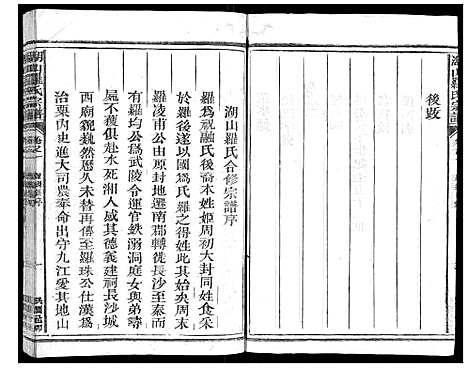 湖山羅氏宗譜
後跋
湖山羅氏合修宗譜序
羅為祝融氏後喬木姓姬周初大封同姓食采
於羅後遂以國為氏羅之得姓此其始矣周末
羅凌甫公由原封地遷南郡轉徙長沙至秦而
有羅均公為武陵令運官鉄溺洞庭女與弟尋
屍不獲俱赴水死湘人感其德義建祠長沙城
西廟貌巍然厯久未替再傳至羅珠公仕漢為
治粟內史進大司農奉命出守九江愛其地山
湖山羅氏宗譜